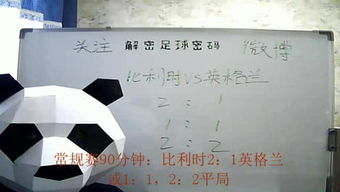 关注 解密足球密码 微博
比利时vs英格兰
2 : 1
1 : 1
2 : 2
常规赛90分钟：比利时2：1英格兰
或1：1，2：2平局